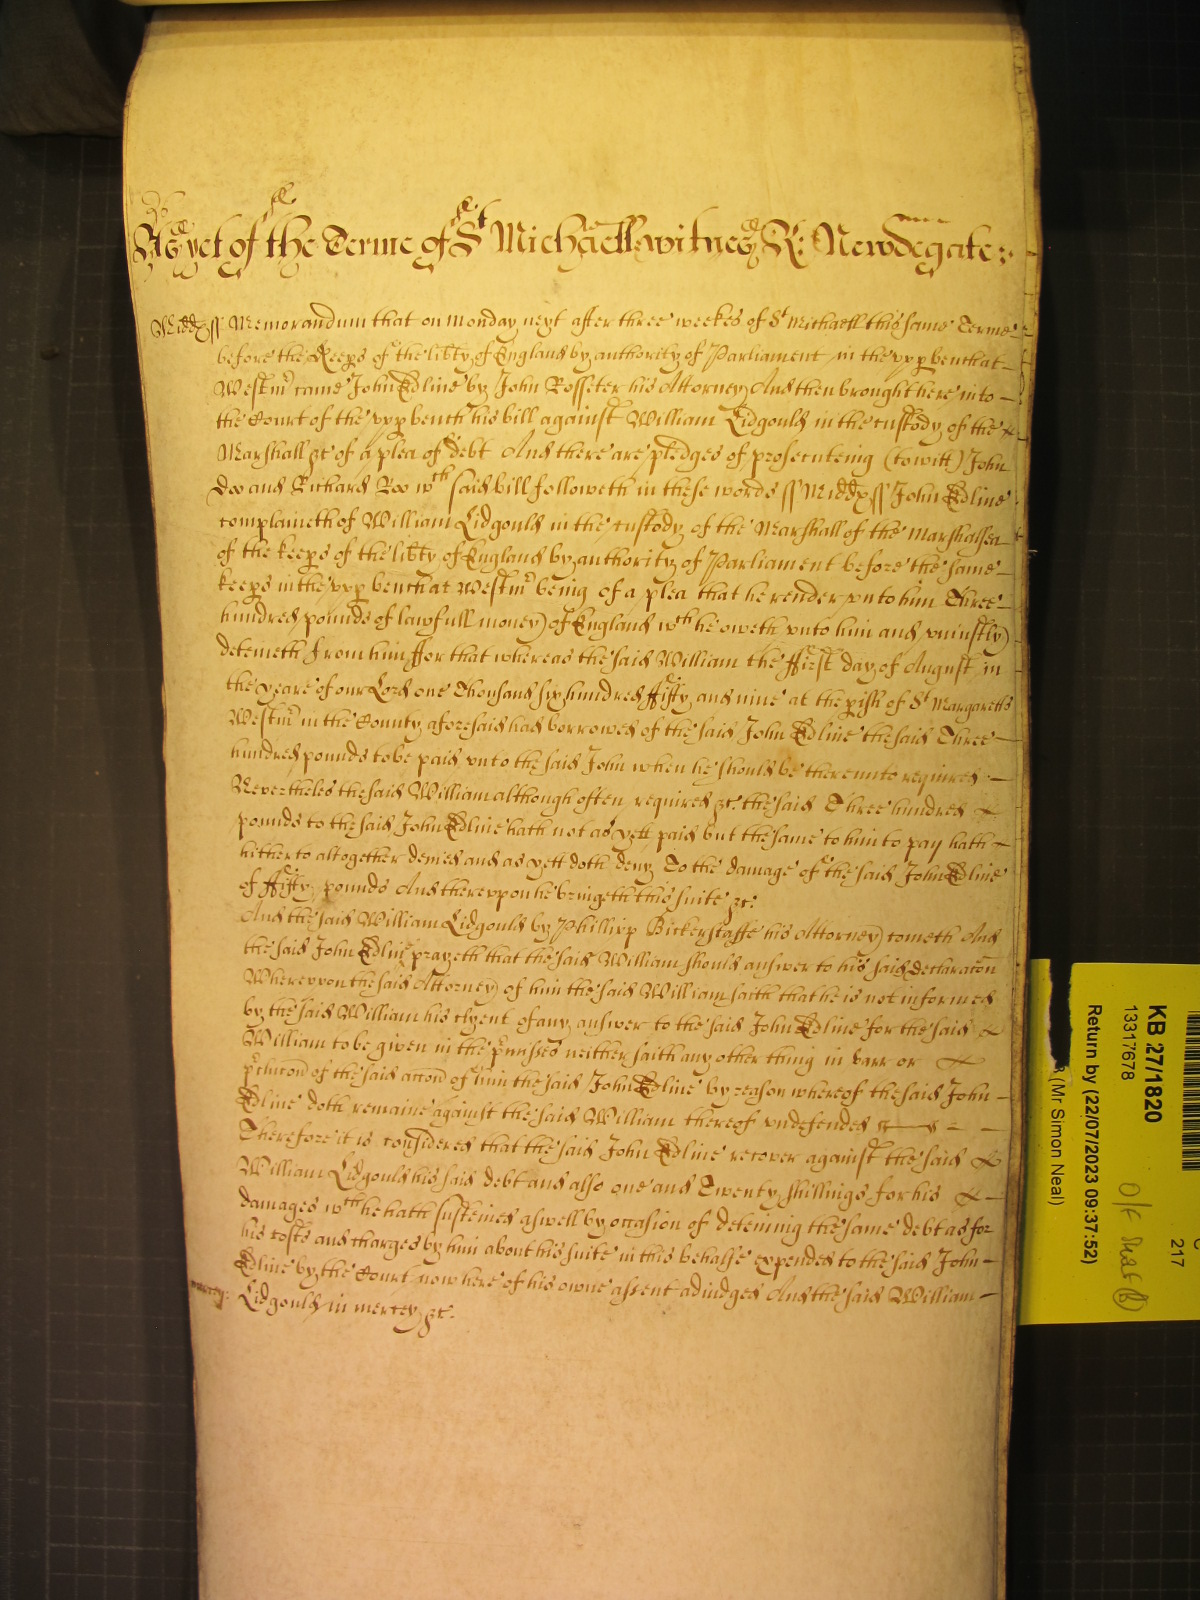 As yet of the Terme of St Michaell witnes R: Newdegate:
Midds ss Memorandum that on Monday next after three weekes of St Michaell this same Terme
before the Keeps of the libty of England by authority of Parliament in the vpp bench at
Westmr came John Edline by John Rosseter his Attorney And then brought here into
the Court of the vpp bench his bill against William Lidgould in the custody of the
Marshall &c of a plea of debt And there are pledges of prosecuteing (to witt) John
Doo and Richard Roo wch said bill followeth in these words ss Middx ss John Edline
complaineth of William Lidgould in the custody of the Marshall of the Marshalsea
of the keeps of the libty of England by authority of Parliament before the same
keeps in the vpp bench at Westmr being of a plea that he render vnto him Three
hundred pounds of lawfull money of England wch he oweth vnto him and vniustly
deteineth from him ffor that whereas the said William the ffirst day of August in
the yeare of our Lord one Thousand six hundred ffifty and nine at the pish of St Margaretts
Westmr in the County aforesaid had borrowed of the said John Edline the said Three
hundred pounds to be paid vnto the said John when he should be therevnto required
Nevertheles the said William although often required &c the said Three hundred
pounds to the said John Edline hath not as yett paid but the same to him to pay hath
hitherto altogether denied and as yett doth deny To the damage of the said John Edline
of ffifty pounds And therevpon he bringeth this suite &c:
And the said William Lidgould by Phillipp Bickerstaffe his Attorney cometh And
the said John Edline prayeth that the said William should answer to his said declaracon
Wherevpon the said Attorney of him the said William saith that he is not informed
by the said William his clyent of any answer to the said John Edline for the said
William to be given in the pmises neither saith any other thing in barr or
pclucon of the said accon of him the said John Edline by reason whereof the said John
Edline doth remaine against the said William thereof vndefended
Therefore it is considered that the said John Edline recover against the said
William Lidgould his said debt and also one and Twenty shillings for his
damages wch he hath susteined aswell by occasion of deteining the same debt as for
his costs and charges by him about his suite in this behalfe expended to the said John
Edline by the Court now here of his owne assent adiudged And the said William
mercy: Lidgould in mercey &c.
KB 27/1820
13317678
Return by (22/07/2023 09:37:52)
(Mr Simon Neal)
217